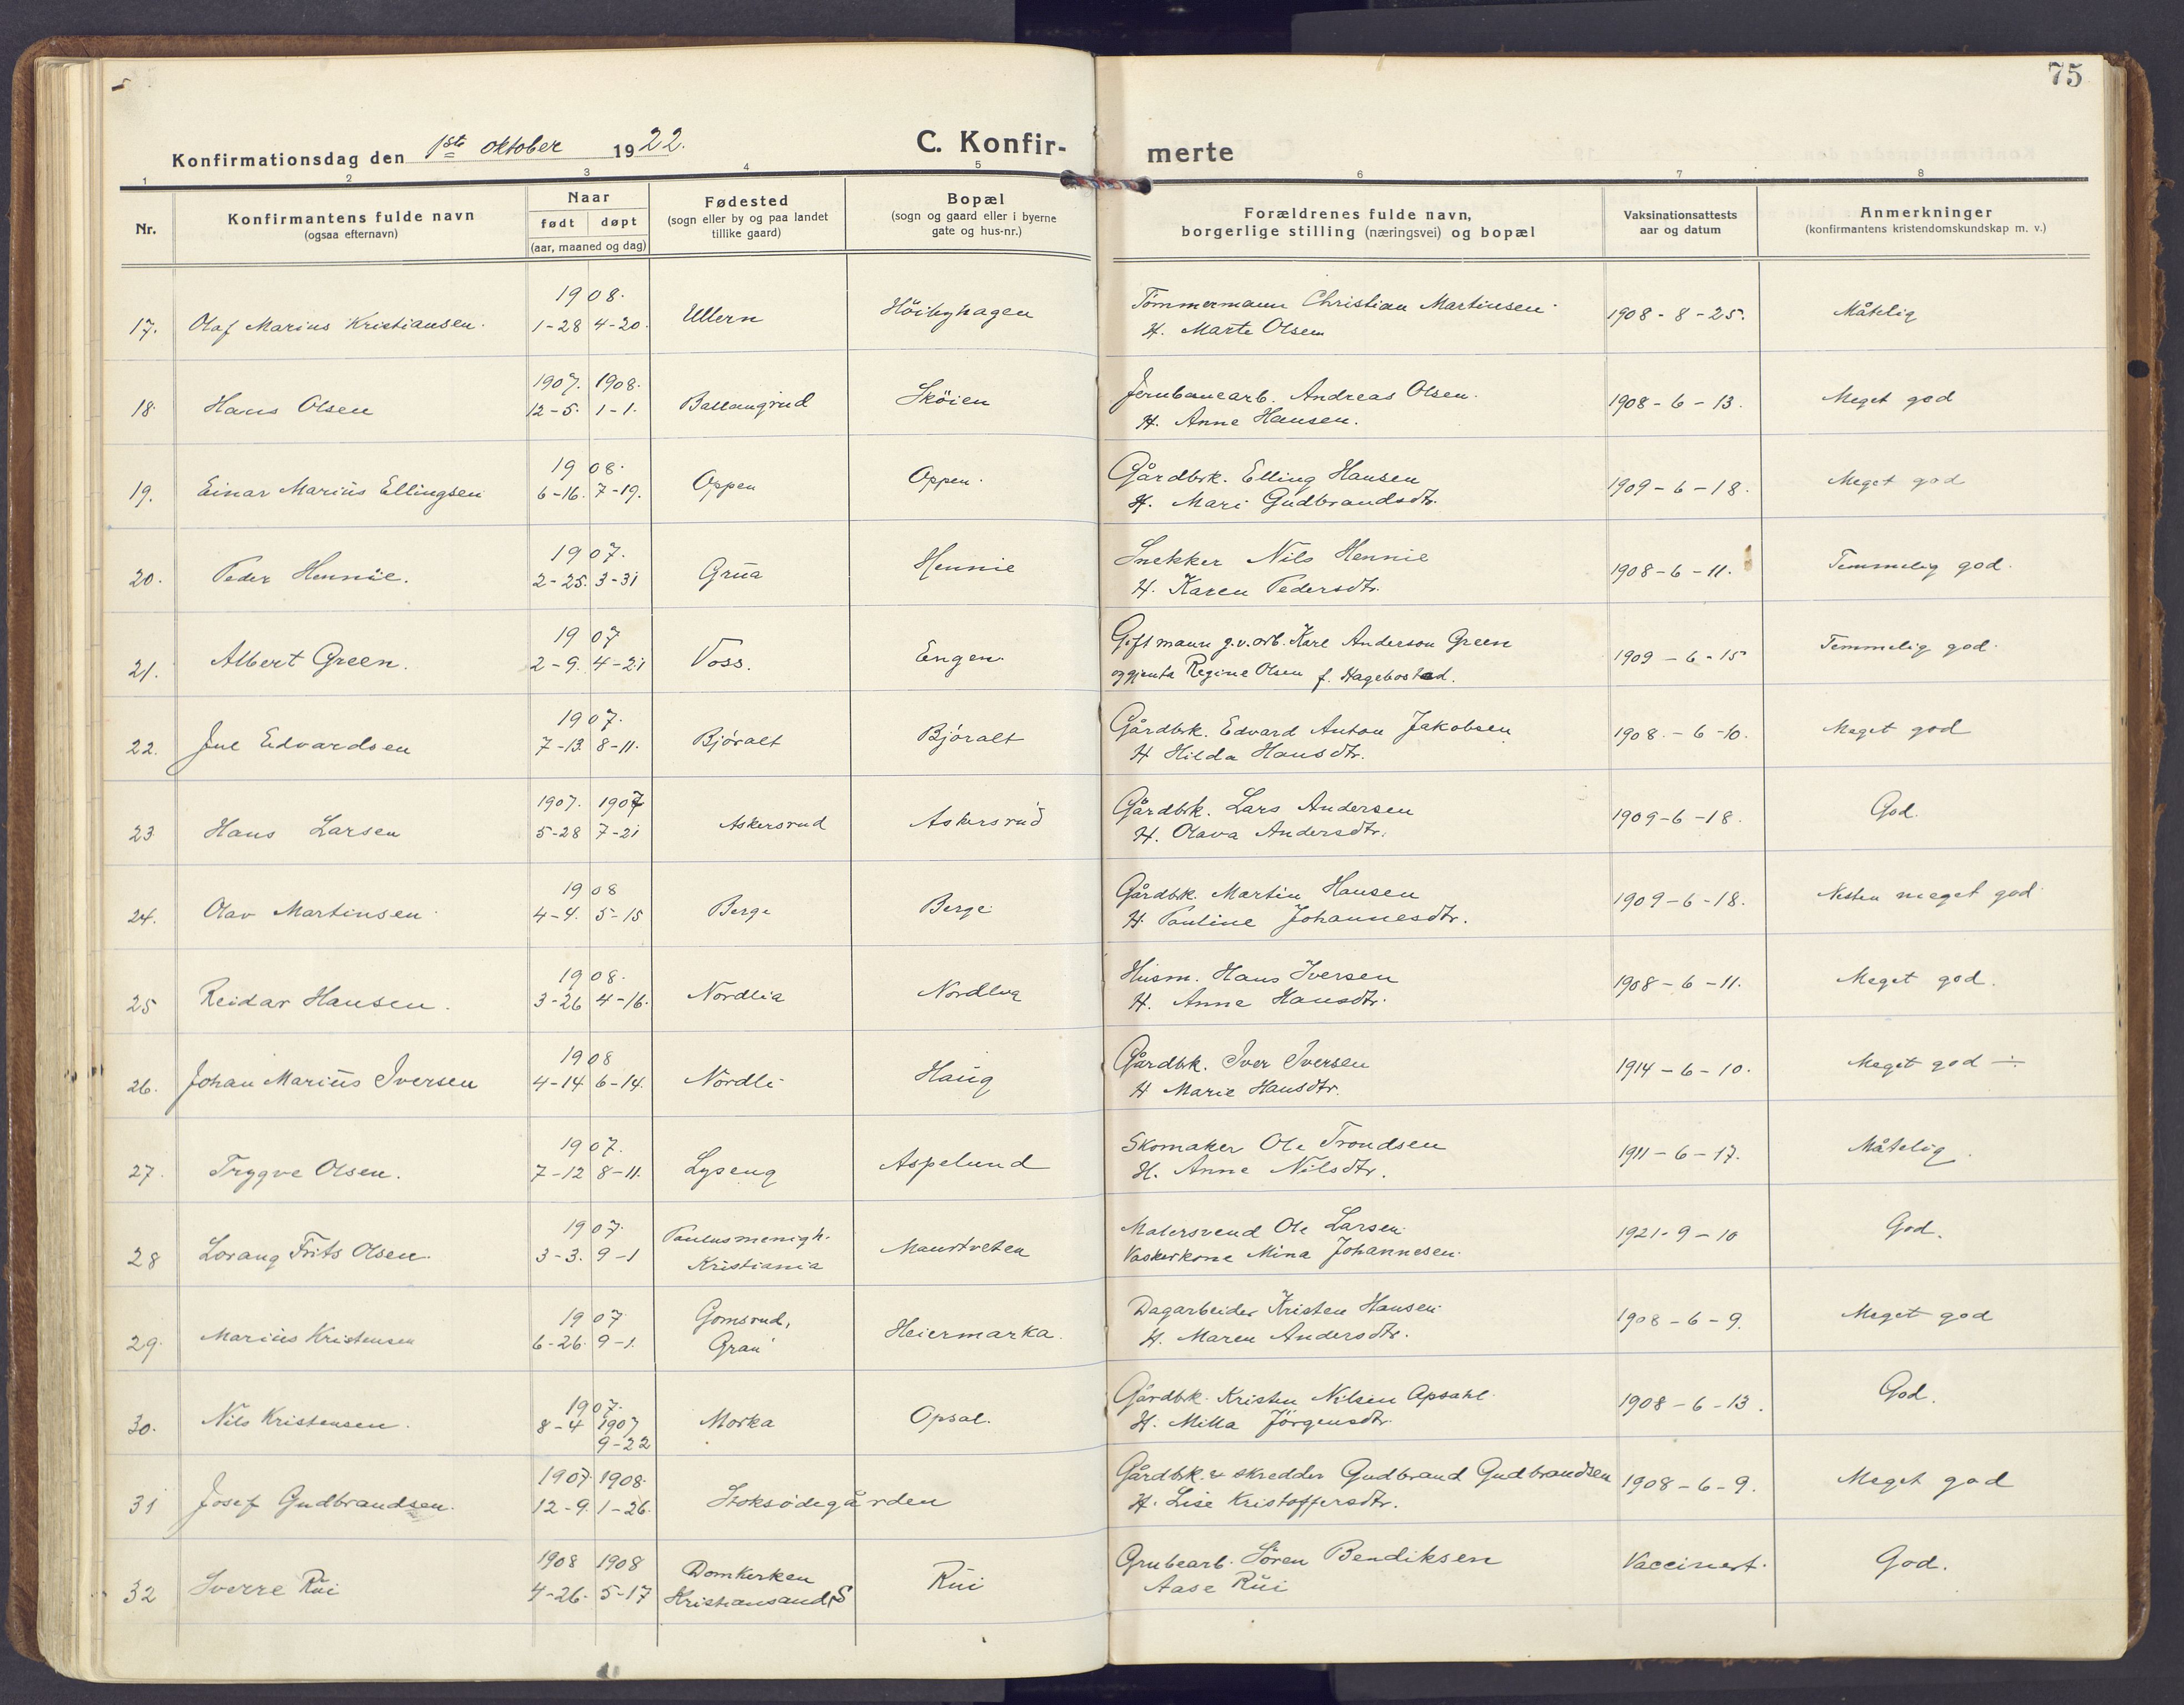 75
Konfirmationsdag den 1ste oktober 1922.
C. Konfir-
merte
1 2 3 4 5 6 7 8
Nr.
Konfirmantens fulde navn
(ogsaa efternavn)
Naar
født døpt
(aar, maaned og dag)
Fødested
(sogn eller by og paa landet
tillike gaard)
Bopæl
(sogn og gaard eller i byerne
gate og hus-nr.)
Forældrenes fulde navn,
borgerlige stilling (næringsvei) og bopæl
Vaksinationsattests
aar og datum
Anmerkninger
(konfirmantens kristendomskundskap m. v.)
1908.
17. Olaf Marius Kristiansen. 1-28 4-20. Ullern Höibyhagen Tömmermann Christian Martinsen 1908-8-25. Måtelig
H. Marte Olsen
1907. 1908.
18. Hans Olsen 12-5. 1-1. Ballangrud Sköien Jernbanearb. Andreas Olsen. 1908-6-13. Meget god
H. Anne Hansen.
1908.
19. Einar Marius Ellingsen 6-16. 7-19. Oppen Oppen. Gårdbrk. Elling Hansen 1909-6-18. Meget god
H. Mari Gudbrandsdtr.
1907.
20. Peder Hennie. 2-25. 3-31 Grua Hennie Snekker Nils Hennie 1908-6-11. Temmelig god.
H. Karen Pedersdtr.
1907
21. Albert Green. 2-9. 4-21 Voss. Engen. Gift mann g.v.arb. Karl Anderson Green 1909-6-15 Temmelig god.
og gjenta Regine Olsen f. Hagebostad.
1907.
22. Jul Edvardsen 7-13. 8-11. Bjøralt Bjøralt Gårdbrk. Edvard Anton Jakobsen 1908.-6-10. Meget god
H Hilda Hansdtr.
1907. 1907
23 Hans Larsen 5-28 7-21 Askersrud Askersrud Gårdbrk. Lars Andersen 1909-6-18. God.
H. Olava Andersdtr.
1908
24. Olav Martinsen 4-4. 5-15 Berge Berge Gårdbk. Martin Hansen 1909-6-18. Nesten meget god
H. Pauline Johannesdtr.
1908.
25 Reidar Hansen. 3-26 4-16. Nordlia Nordlia Husm. Hans Iversen 1908-6-11. Meget god.
H. Anne Hansdtr.
1908
26. Johan Marius Iversen 4-14 6-14. Nordli Haug Gårdbk. Iver Iversen 1914-6-10. Meget god ÷
H Marie Hansdtr.
1907.
27. Trygve Olsen. 7-12 8-11. Lyseng Aspelund Skomaker Ole Trondsen 1911-6-17. Måtelig.
H. Anne Nilsdtr.
1907.
28 Lorang Frits Olsen. 3-3. 9-1 Paulusmenigh. Kristiania Maurtveten Malersvend Ole Larsen. 1921-9-10 God.
Vaskerkone Mina Johannesen.
1907
29. Marius Kristensen 6-26. 9-1. Gomsrud, Gran Heiermarka. Dagarbeider Kristen Hansen. 1908-6-9. Meget god
H. Maren Andersdtr.
1907.
30. Nils Kristensen. 8-4 1907 9-22 Morka Opsal. Gårdbk. Kristen Nilsen Opsahl 1908-6-13. God.
H. Milla Jörgensdtr.
1907. 1908.
31 Josef Gudbrandsen. 12-9. 1-26. Stoksødegården Gårdbk. & skredder Gudbrand Gudbrandsen 1908-6-9. Meget god
H. Lise Kristoffersdtr.
1908 1908
32 Sverre Rui 4-26. 5-17 Domkerken Kristiansand S Rui Grubearb. Sören Bendiksen Vaccinert. God.
Aase Rui